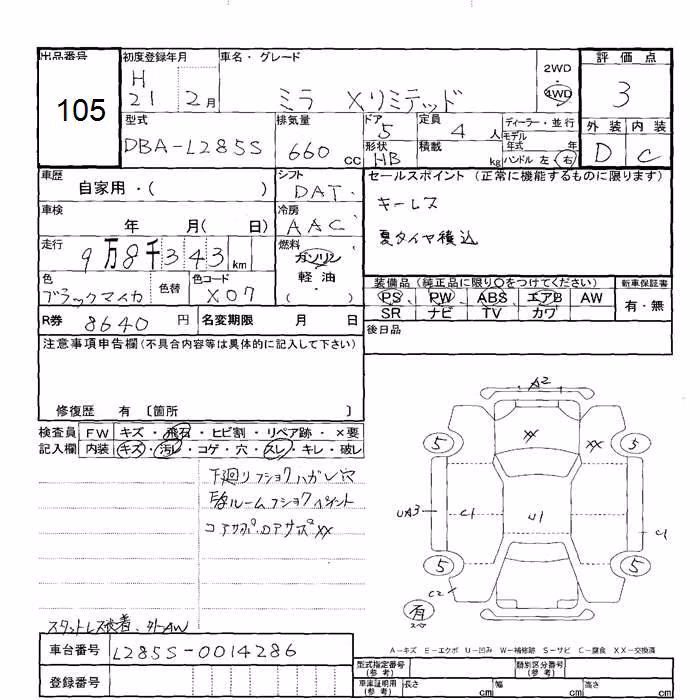 出品番号 初度登録年月 車名・グレード 2WD 4WD 評価点
105 H 21 2月 ミラ Xリミテッド 3
型式 排気量 ドア 定員 ディーラー・並行 外装 内装
DBA-L285S 660cc 5 4人 モデル年式 年 D C
形状 HB 積載 kg ハンドル 左・右
車歴 自家用・( ) シフト DAT セールスポイント (正常に機能するものに限ります)
車検 年 月( 日) 冷房 AAC キーレス
走行 9万8千343km 燃料 ガソリン・軽油 ( ) 夏タイヤ積込
色 ブラックマイカ 色替 色コード X07
装備品 (純正品に限り○をつけてください) 新車保証書
PS PW ABS エアB AW 有・無
SR ナビ TV カワ
R券 8640円 名変期限 月 日 後日品
注意事項申告欄(不具合内容等は具体的に記入して下さい)
修復歴 有 〔箇所 〕
検査員 FW キズ・飛石・ヒビ割・リペア跡・×要
記入欄 内装 キズ・汚レ・コゲ・穴・スレ・キレ・破レ
下廻リフショクハガレ穴
ルームフショクペイント
XX
スタットレス装着、外AW
A2
XX XX
5 5
UA3 C1 U1 C1
5 5
C2
有
A-キズ E-エクボ U-凹み W-補修跡 S-サビ C-腐食 XX-交換済
車台番号 L285S-0014286
登録番号
型式指定番号(参考) 類別区分番号(参考)
車庫証明用(参考) 長さ cm 幅 cm 高さ cm